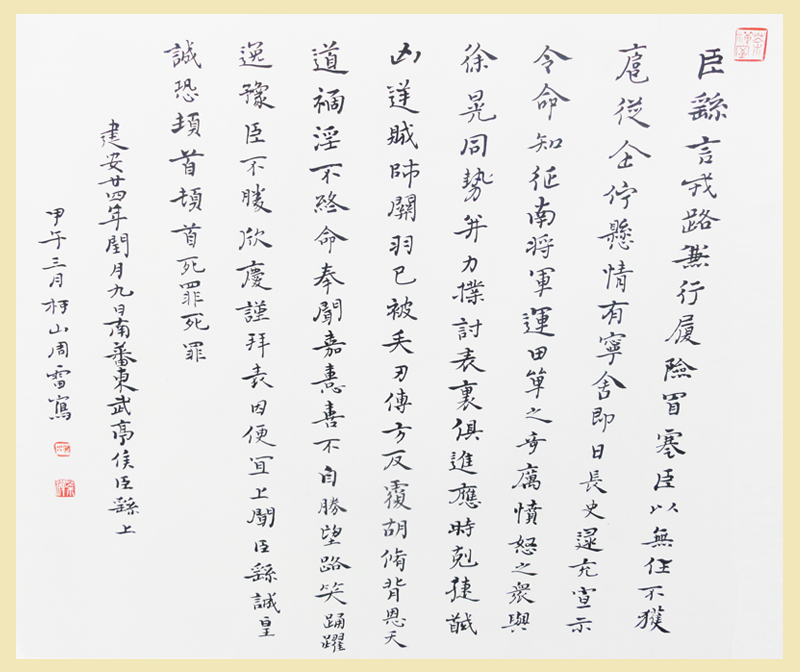 臣繇言戎路兼行履險冒寒臣以無任不獲
扈從企佇懸情有寧舍即日長史逯充宣示
令命知征南將軍運田單之奇厲憤怒之衆與
徐晃同勢并力撲討表裏俱進應時剋捷馘
凶逆賊帥關羽已被矢刃傅方反覆胡脩背恩天
道禍淫不終命奉聞嘉憙喜不自勝望路笑踊躍
逸豫臣不勝欣慶謹拜表因便宜上聞臣繇誠皇
誠恐頓首頓首死罪死罪
建安廿四年閏月九日南蕃東武亭侯臣繇上
甲午三月山周雷寫